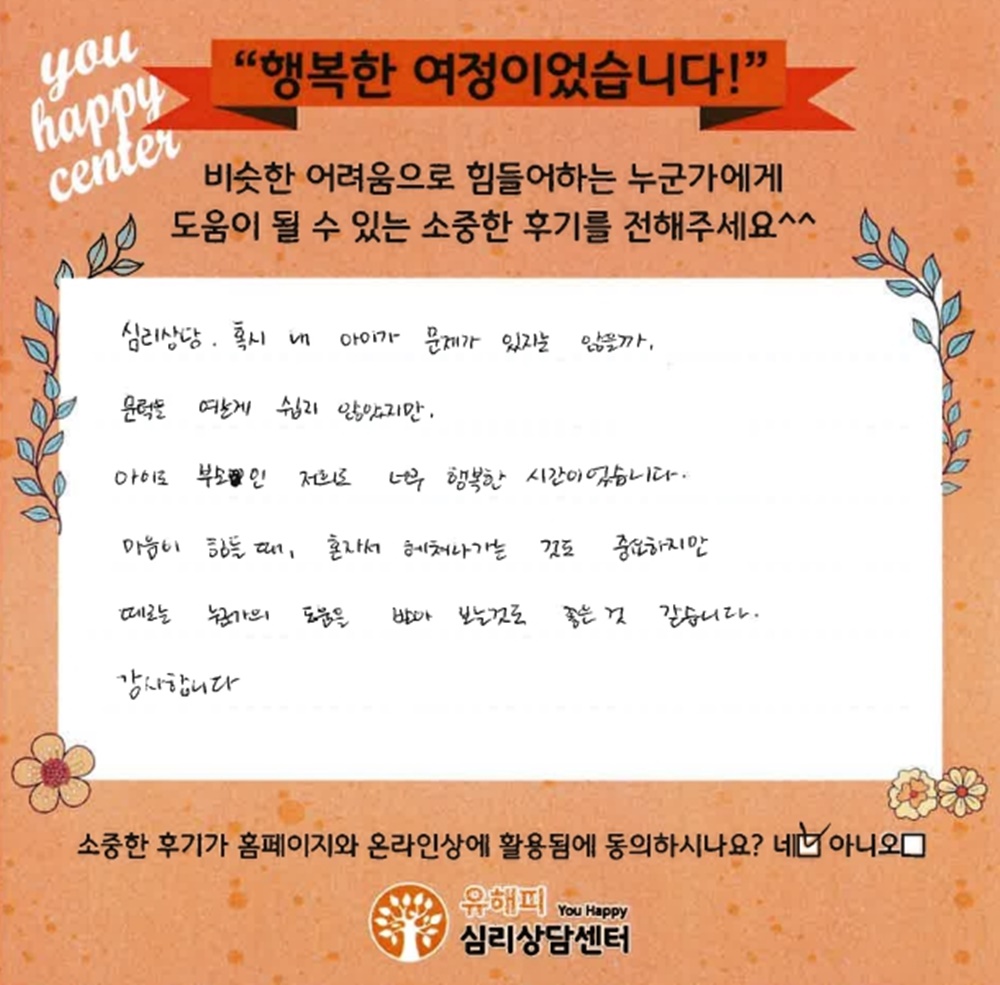 you
happy
center
“행복한 여정이었습니다!”
비슷한 어려움으로 힘들어하는 누군가에게
도움이 될 수 있는 소중한 후기를 전해주세요^^
심리상담. 혹시 내 아이가 문제가 있지는 않을까.
문턱을 여는게 쉽지 않았지만.
아이도 부모인 저희도 너무 행복한 시간이었습니다.
마음이 힘들 때, 혼자서 헤쳐나가는 것도 중요하지만
때로는 누군가의 도움을 받아 보는것도 좋은 것 같습니다.
감사합니다
소중한 후기가 홈페이지와 온라인상에 활용됨에 동의하시나요? 네☑ 아니오☐
유해피 You Happy
심리상담센터